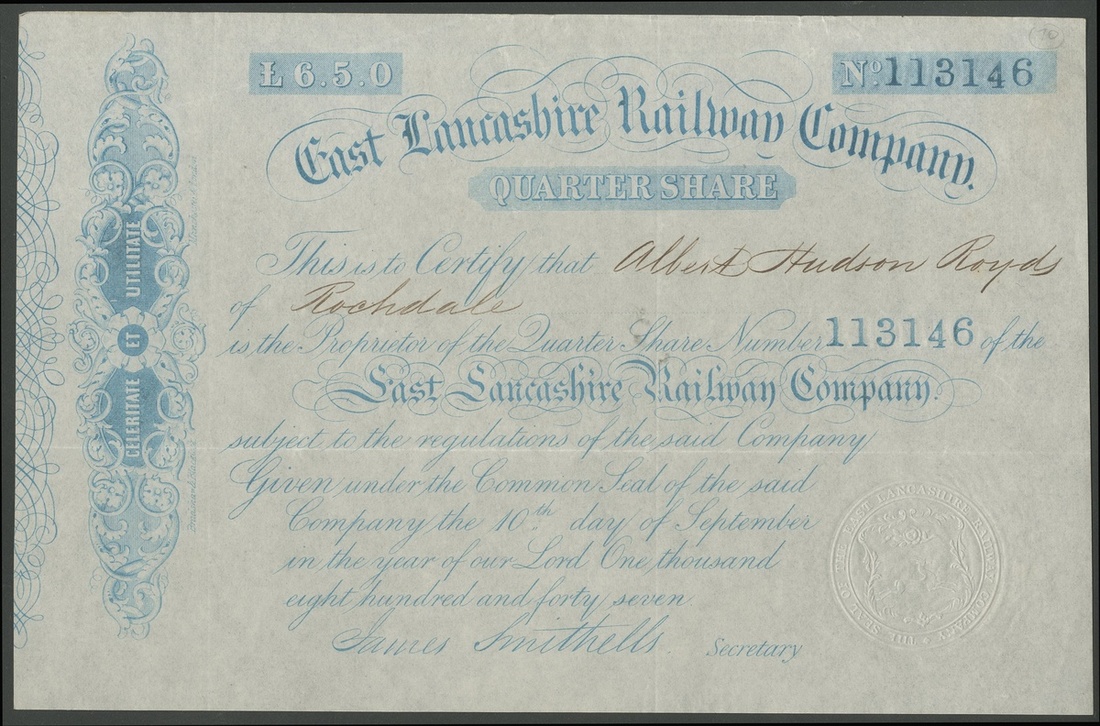 £ 6.5.0
Nº 113146
East Lancashire Railway Company.
QUARTER SHARE
This is to Certify that Albert Hudson Royds
of Rochdale
is the Proprietor of the Quarter Share Number 113146 of the
East Lancashire Railway Company.
subject to the regulations of the said Company
Given under the Common Seal of the said
Company the 10th day of September
in the year of our Lord One thousand
eight hundred and forty seven.
James Smithells. Secretary
CELERITATE ET UTILITATE
THE SEAL OF THE EAST LANCASHIRE RAILWAY COMPANY